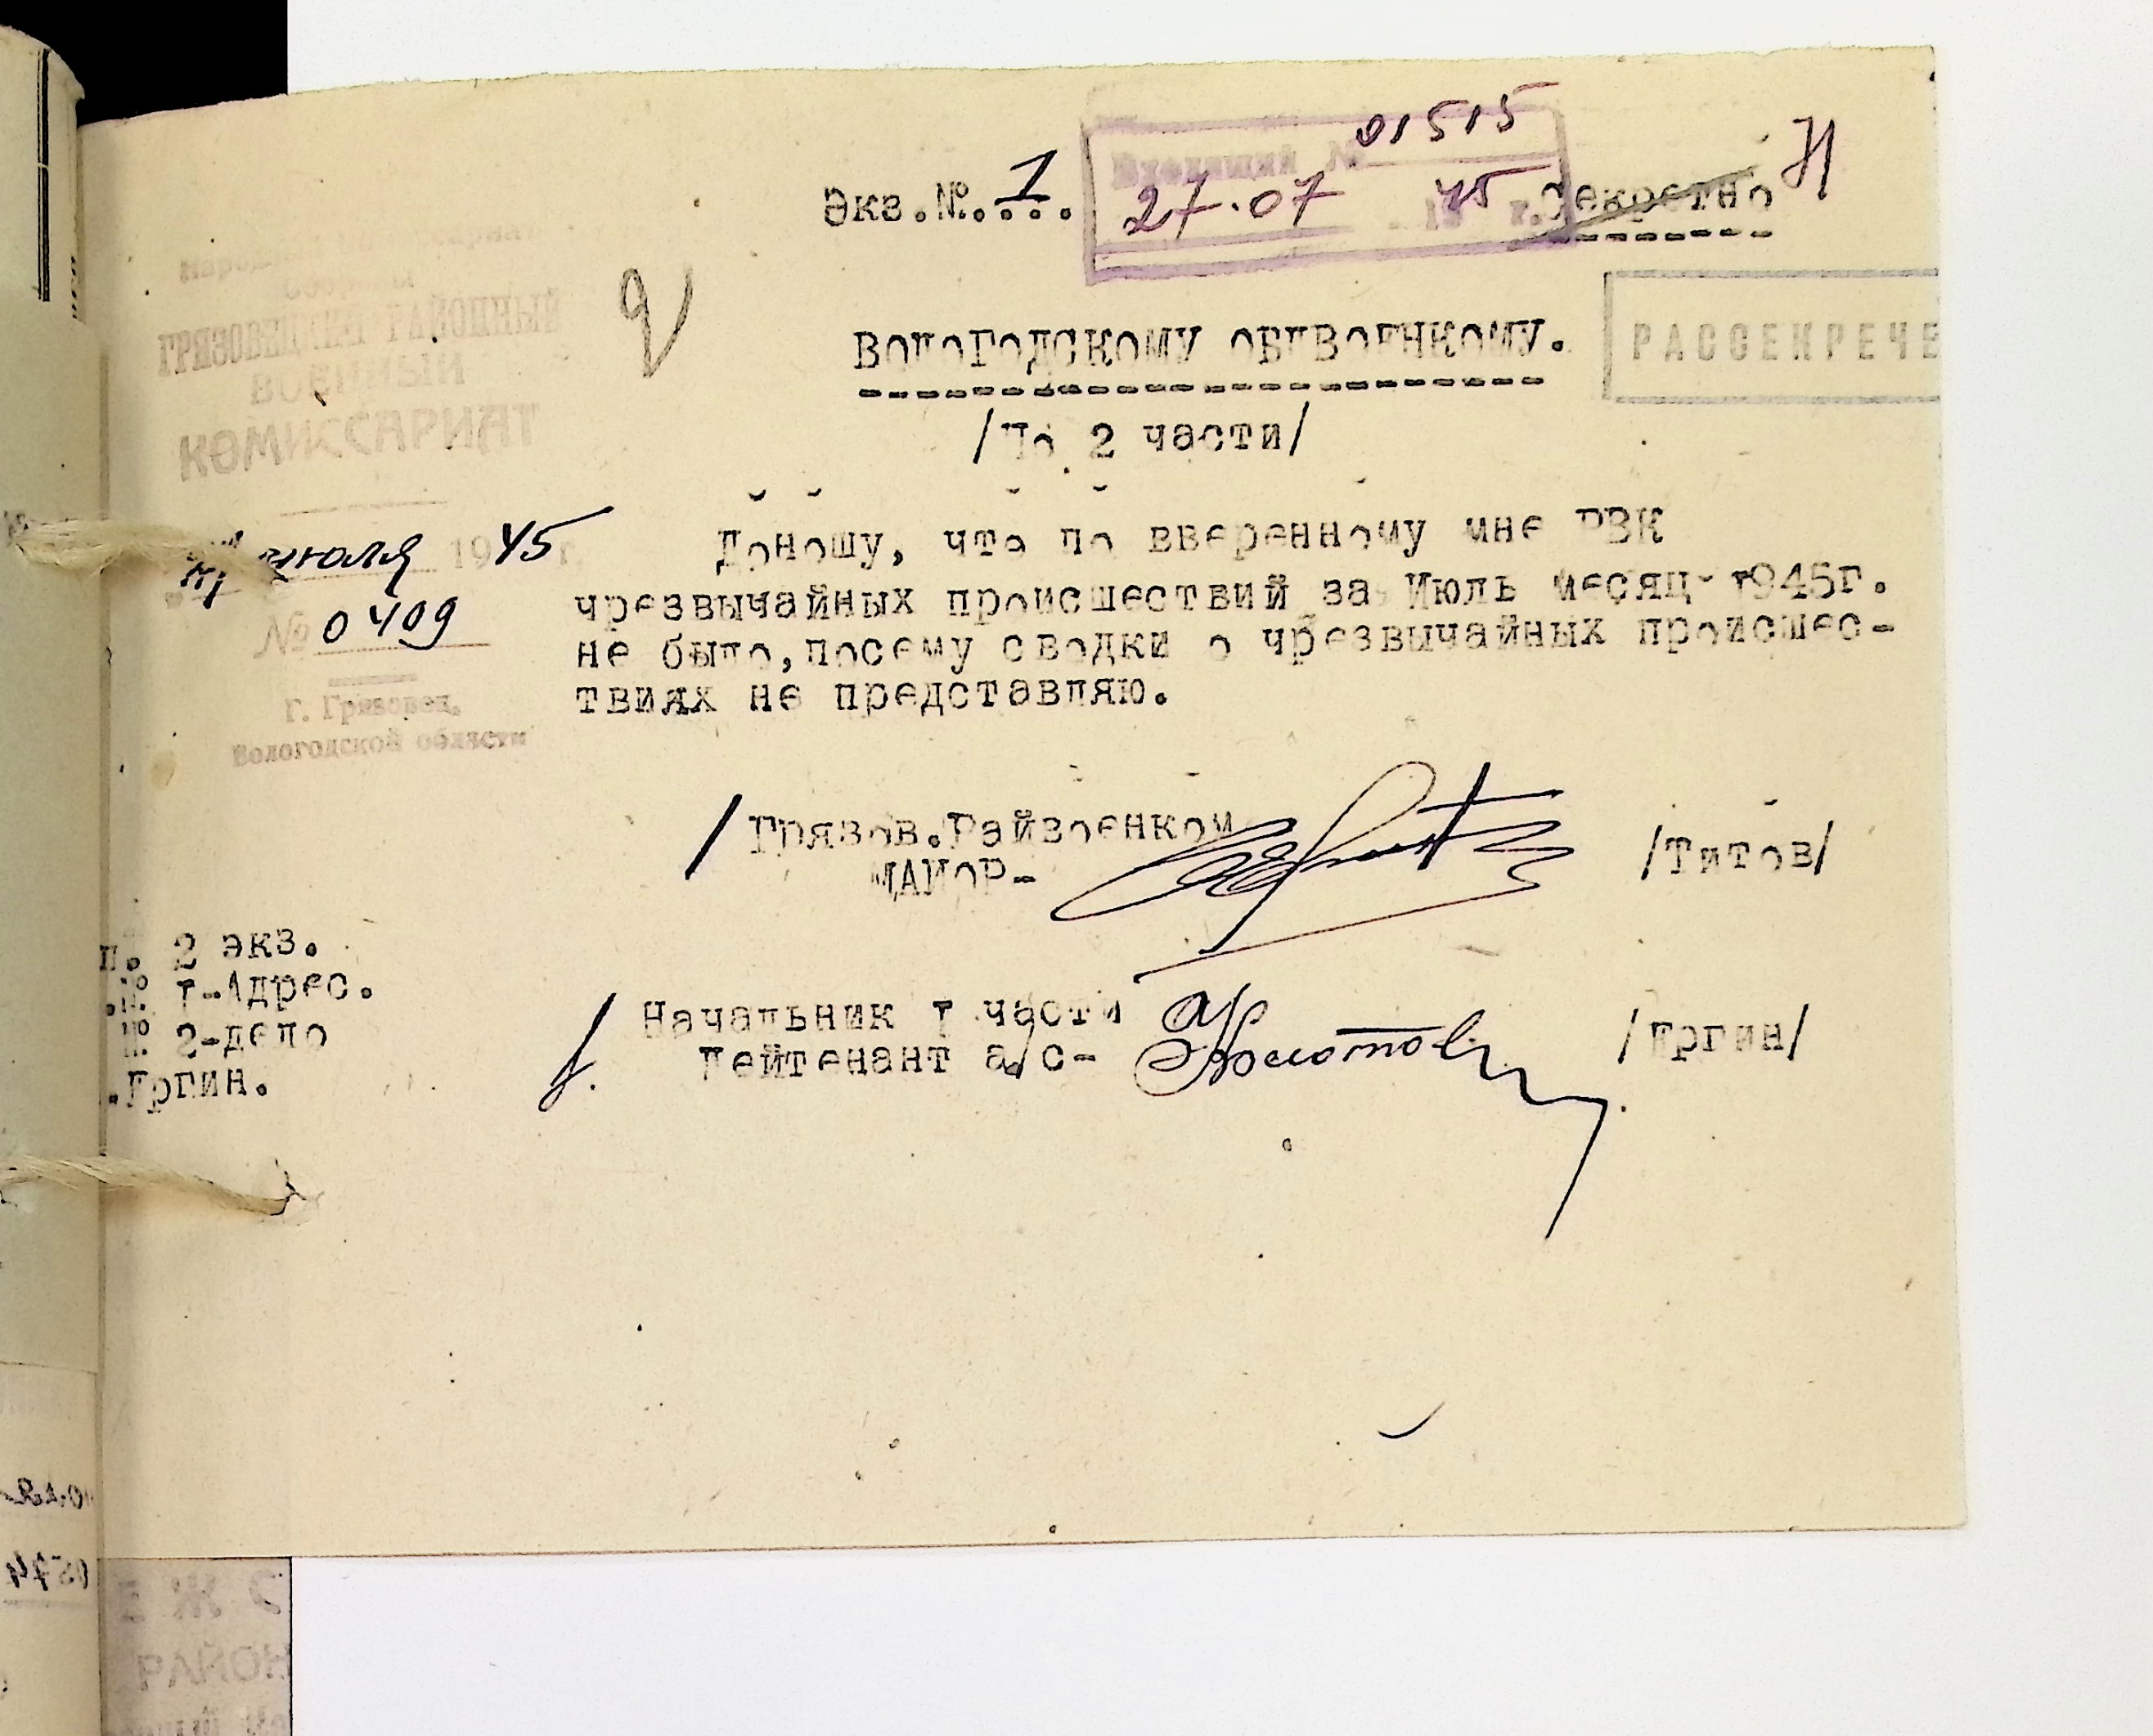 Экз.№.1...
01515
Входящий №
27.07 1945 г.
Секретно
РАССЕКРЕЧЕ
ВОЛОГОДСКОМУ ОБЛВОЕНКОМУ.
/По 2 части/
ГРЯЗОВЕЦКИЙ РАЙОННЫЙ
ВОЕННЫЙ
КОМИССАРИАТ
июля 1945 г.
№ 0409
Г. Грязовец,
Вологодской области
Доношу, что по вверенному мне РВК
чрезвычайных происшествий за Июль месяц 1945г.
не было, посему сводки о чрезвычайных происшес-
твиях не представляю.
/ Грязов.Райвоенком
МАЙОР- /Титов/
Начальник I части
лейтенант а/с- /Ергин/
п. 2 экз.
.№ I-Адрес.
№ 2-дело
.Ергин.
РАЙОН